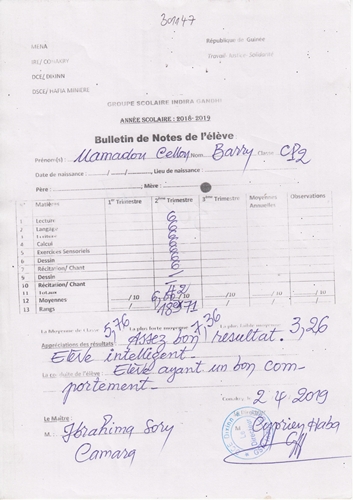 301147
MENA
République de Guinée
IRE/ CONAKRY
Travail Justice Solidarité
DCE/ DIXINN
DSCE/ HAFIA MINIERE
GROUPE SCOLAIRE INDIRA GANDHI
ANNÉE SCOLAIRE : 2018- 2019
Bulletin de Notes de l'élève
Prénom(s) : Mamadou Cellou Nom : Barry Classe : CP2
Date de naissance : ....../....../...... Lieu de naissance :
Père : Mère :
n° Matières 1er Trimestre 2ème Trimestre 3ème Trimestre Moyennes Annuelles Observations
1 Lecture 6
2 Langage 6
3 Ecriture 6
4 Calcul 6
5 Exercices Sensoriels 6
6 Dessin 6
7 Récitation/ Chant 6
9 Dessin
10 Récitation/ Chant
11 Totaux 42
12 Moyennes /10 /10 /10 /10
13 Rangs
La Moyenne de Classe 5,76 La plus forte moyenne 7,36 La plus faible moyenne 3,26
Appréciations des résultats : Assez bon résultat.
Elève intelligent.
La conduite de l'élève : Elève ayant un bon com-
portement.
Conakry, le 2 4 2019
Le Maître :
M : Ibrahima Sory
Camara
Cyprien Haba